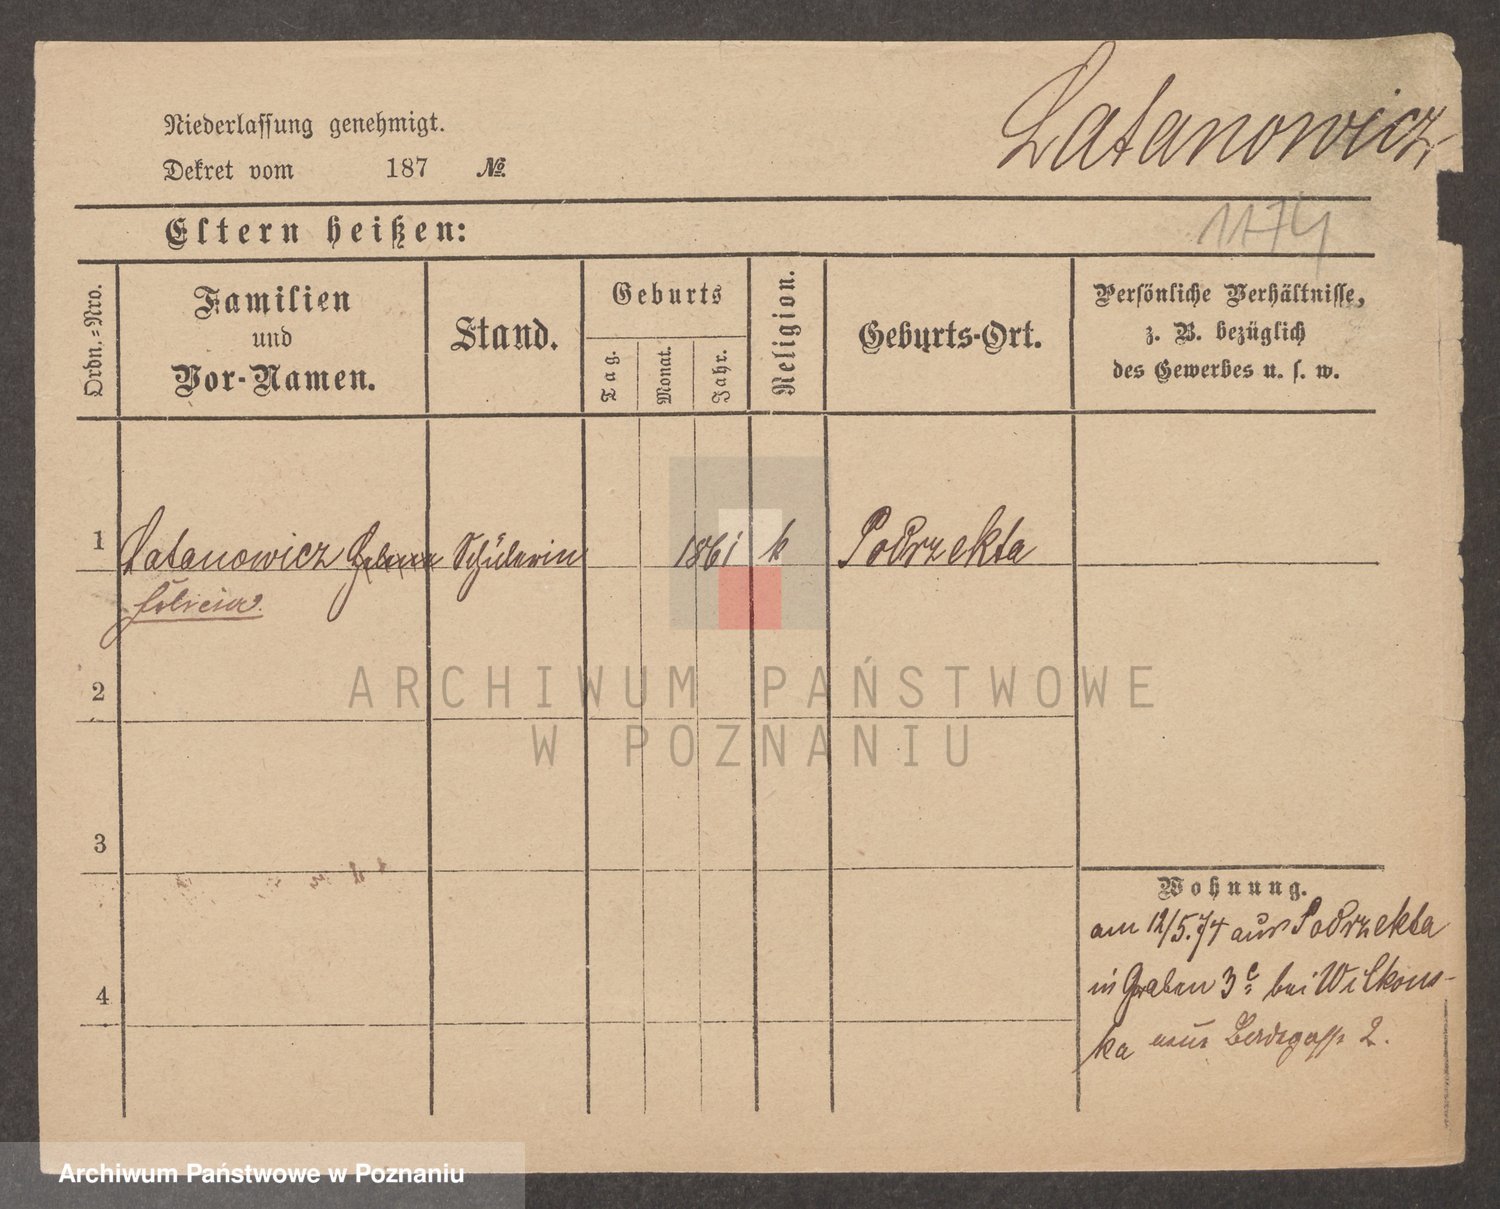 Latanowicz
Niederlassung genehmigt.
Dekret vom 187 №
1174
Eltern heißen:
Ordn.-Nro.
Familien
und
Vor-Namen.
Stand.
Geburts
Tag.
Monat.
Jahr.
Religion.
Geburts-Ort.
Persönliche Verhältnisse,
z. B. bezüglich
des Gewerbes u. s. w.
1 Latanowicz Helena Schülerin 1861 k Podrzekta
Felicia
2
3
4
Wohnung.
am 12/5.74 aus Podrzekta
in Graben 3c bei Wilkons-
ka 2.
ARCHIWUM PAŃSTWOWE
W POZNANIU
Archiwum Państwowe w Poznaniu